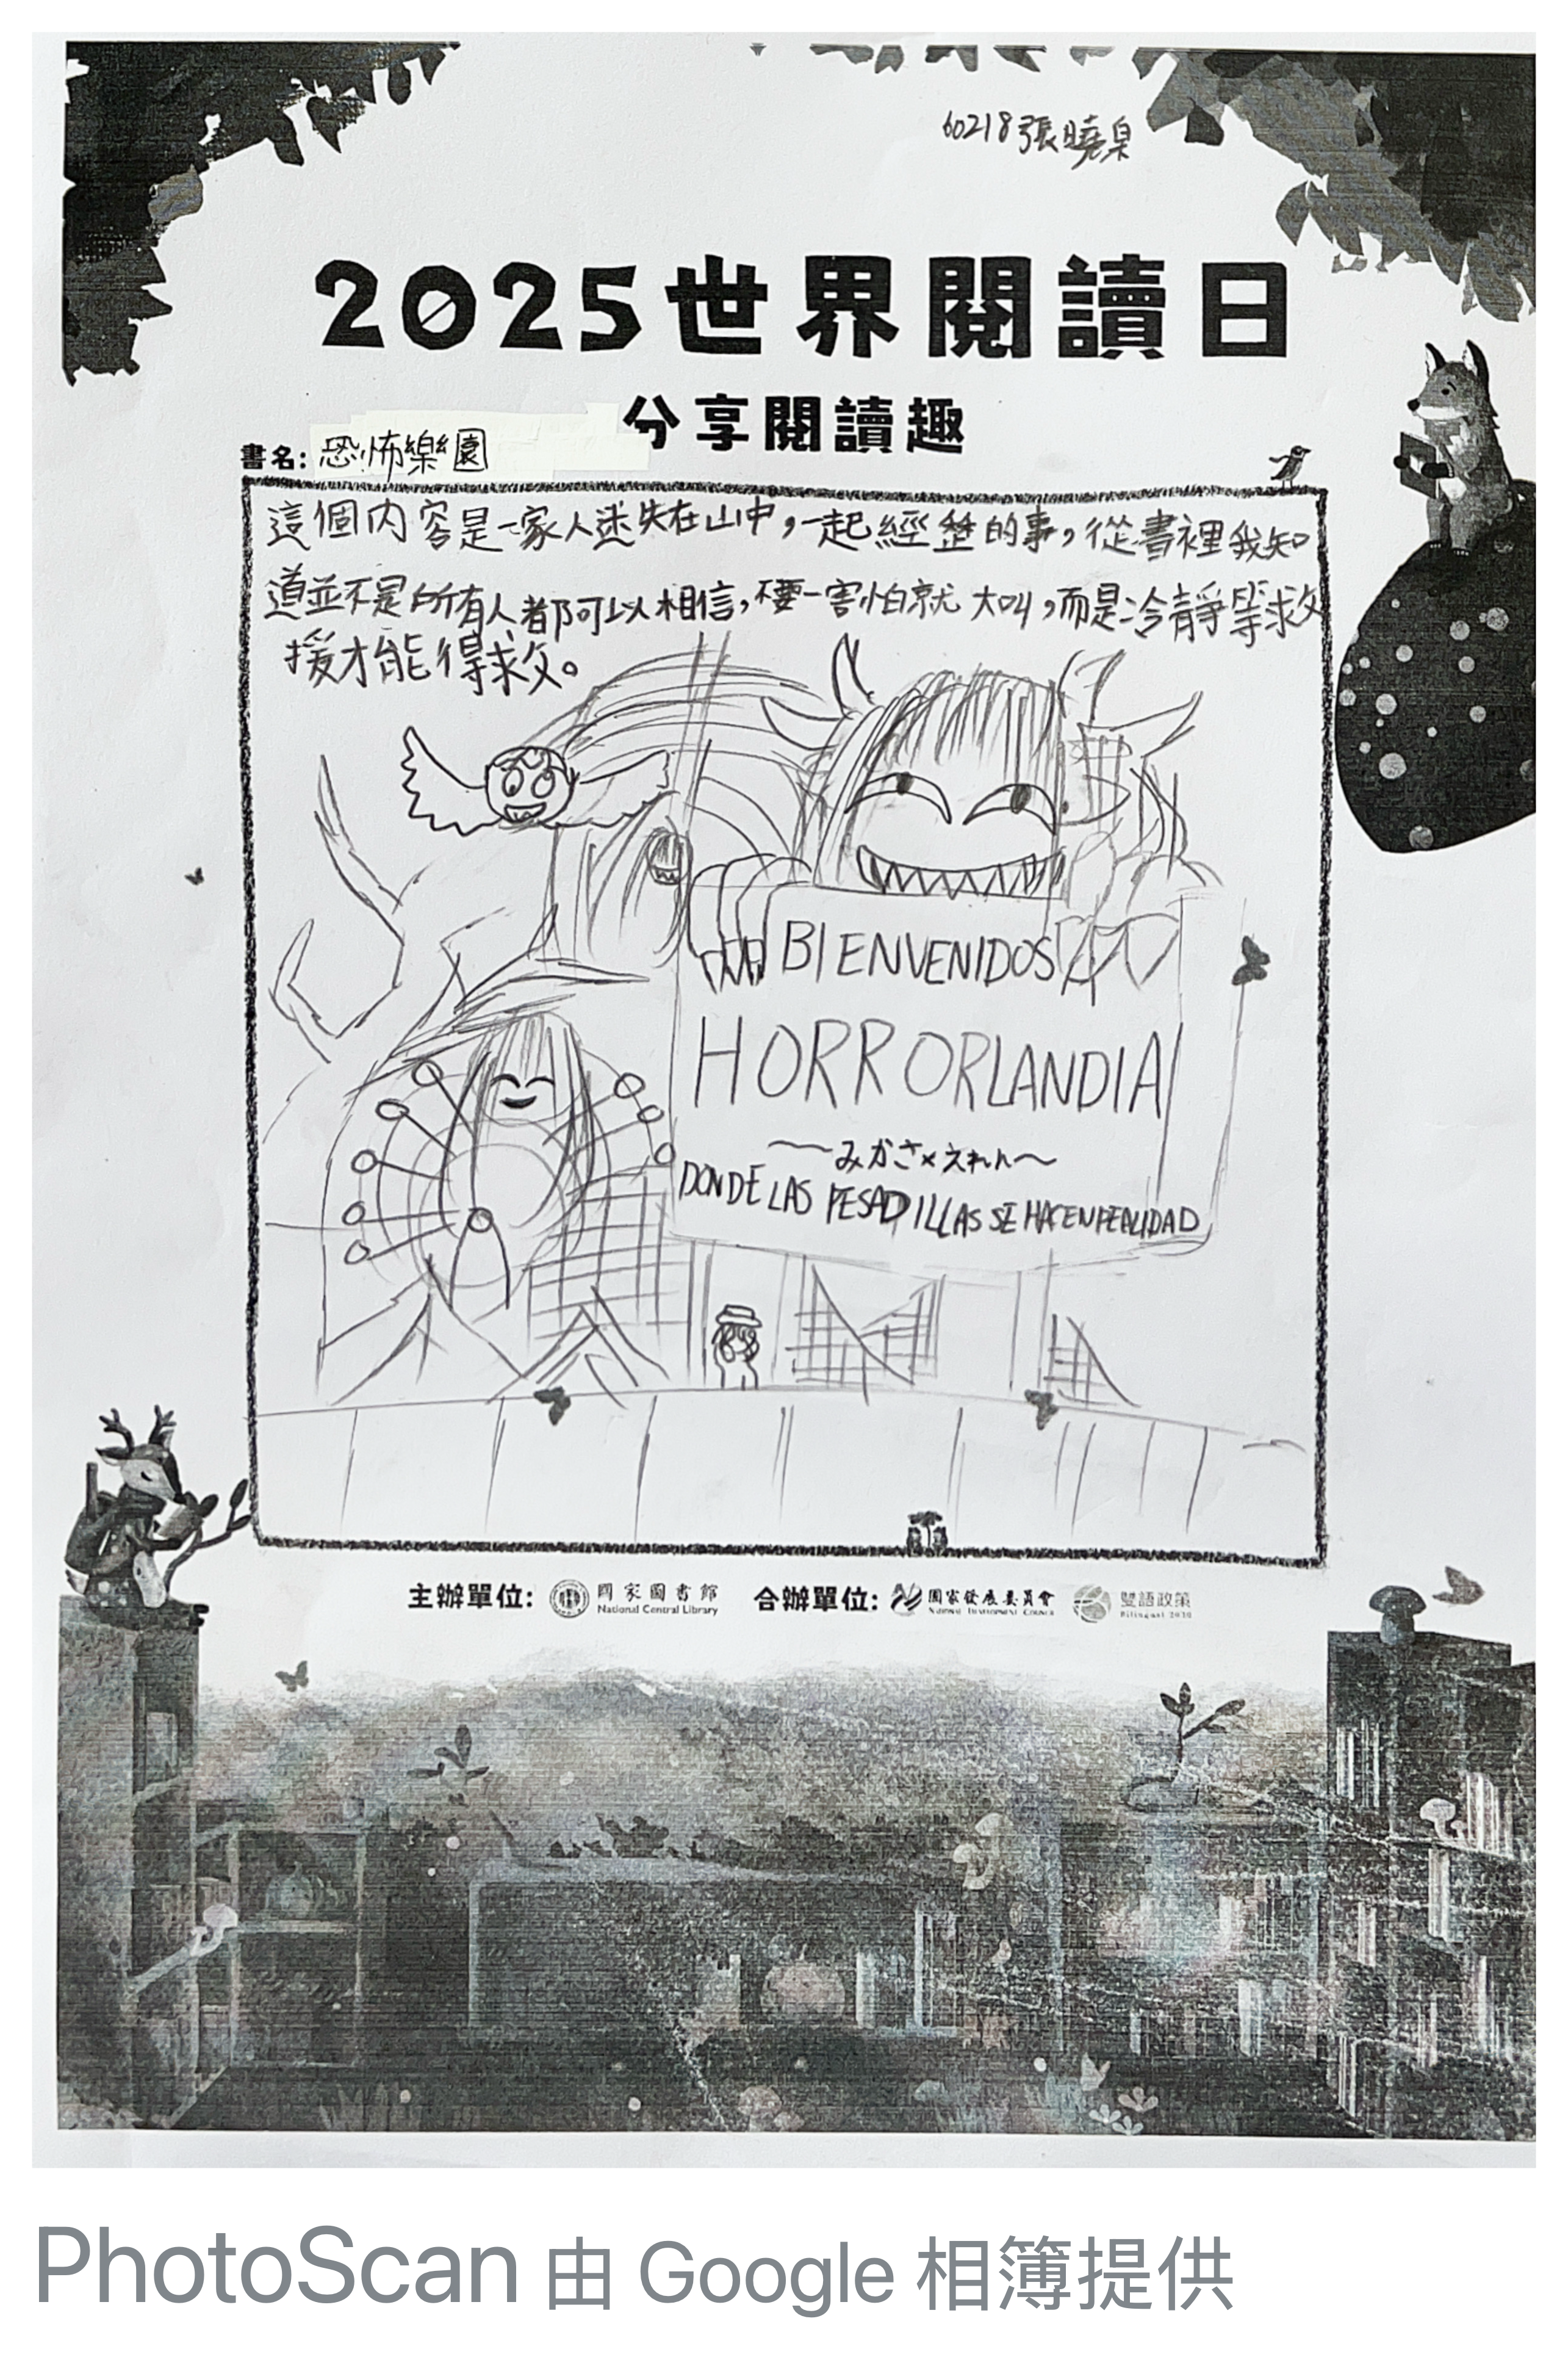 60218張曉臬
2025世界閱讀日
分享閱讀趣
書名:恐怖樂園
這個內容是一家人迷失在山中,一起經歷的事,從書裡我知
道並不是所有人都可以相信,不要一害怕就大叫,而是冷靜等救
援才能得救。
BIENVENIDOS
HORRORLANDIA
～みかさ×えれん～
DONDE LAS PESADILLAS SE HACEN REALIDAD
主辦單位: 國家圖書館 National Central Library 合辦單位: 國家發展委員會 NATIONAL DEVELOPMENT COUNCIL 雙語政策 Bilingual 2030
PhotoScan 由 Google 相簿提供